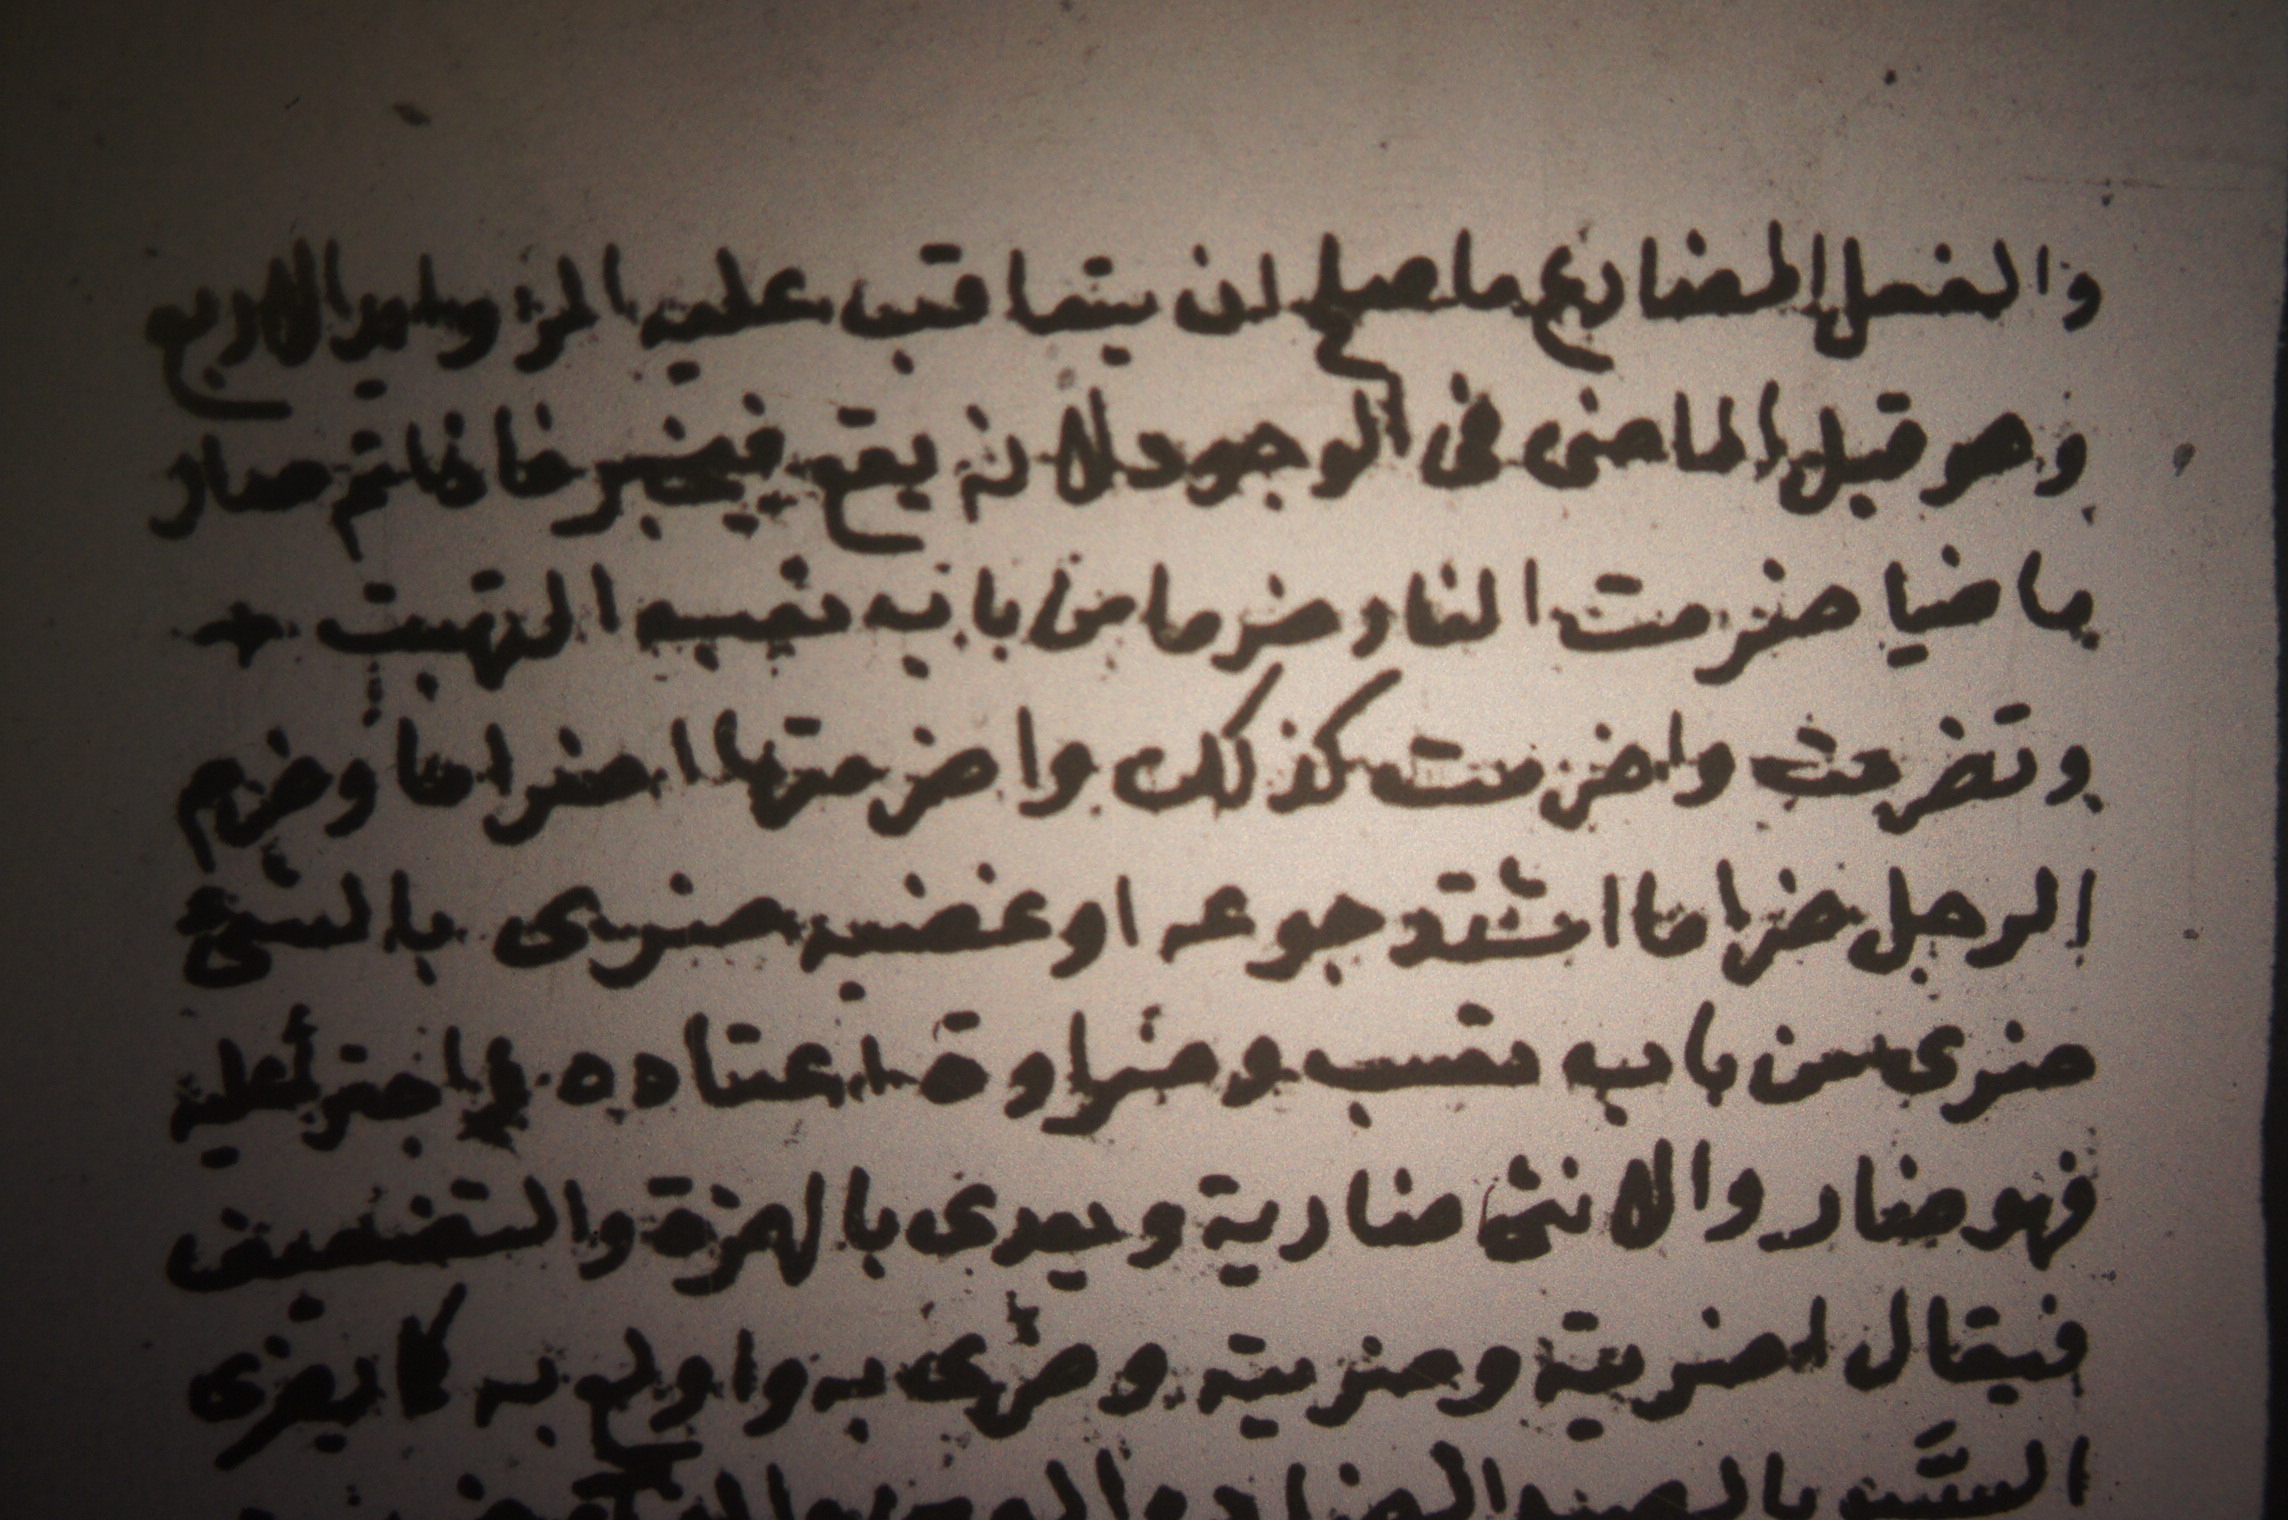 والفعل المضارع ما صلح ان يتعاقب عليه الزوايد الاربع
وهو قبل الماضى فى الوجود لانه يقع فيخبر فاذا تم صار
ماضيا ضرمت النار ضرما من بابه تعب التهبت
وتضرمت واضرمت كذلك واضرمتها اضراما وضرم
الرجل ضراما اشتد جوعه او غضبه ضرى بالشئ
ضرى من بابه تعب وضراوة اعتاده واجترأ عليه
فهو ضار والانثى ضارية ويعدى بالهمزة والتضعيف
فيقال اضريته وضريته وضرى به واولع به كما يغرى
السبع بالصيد